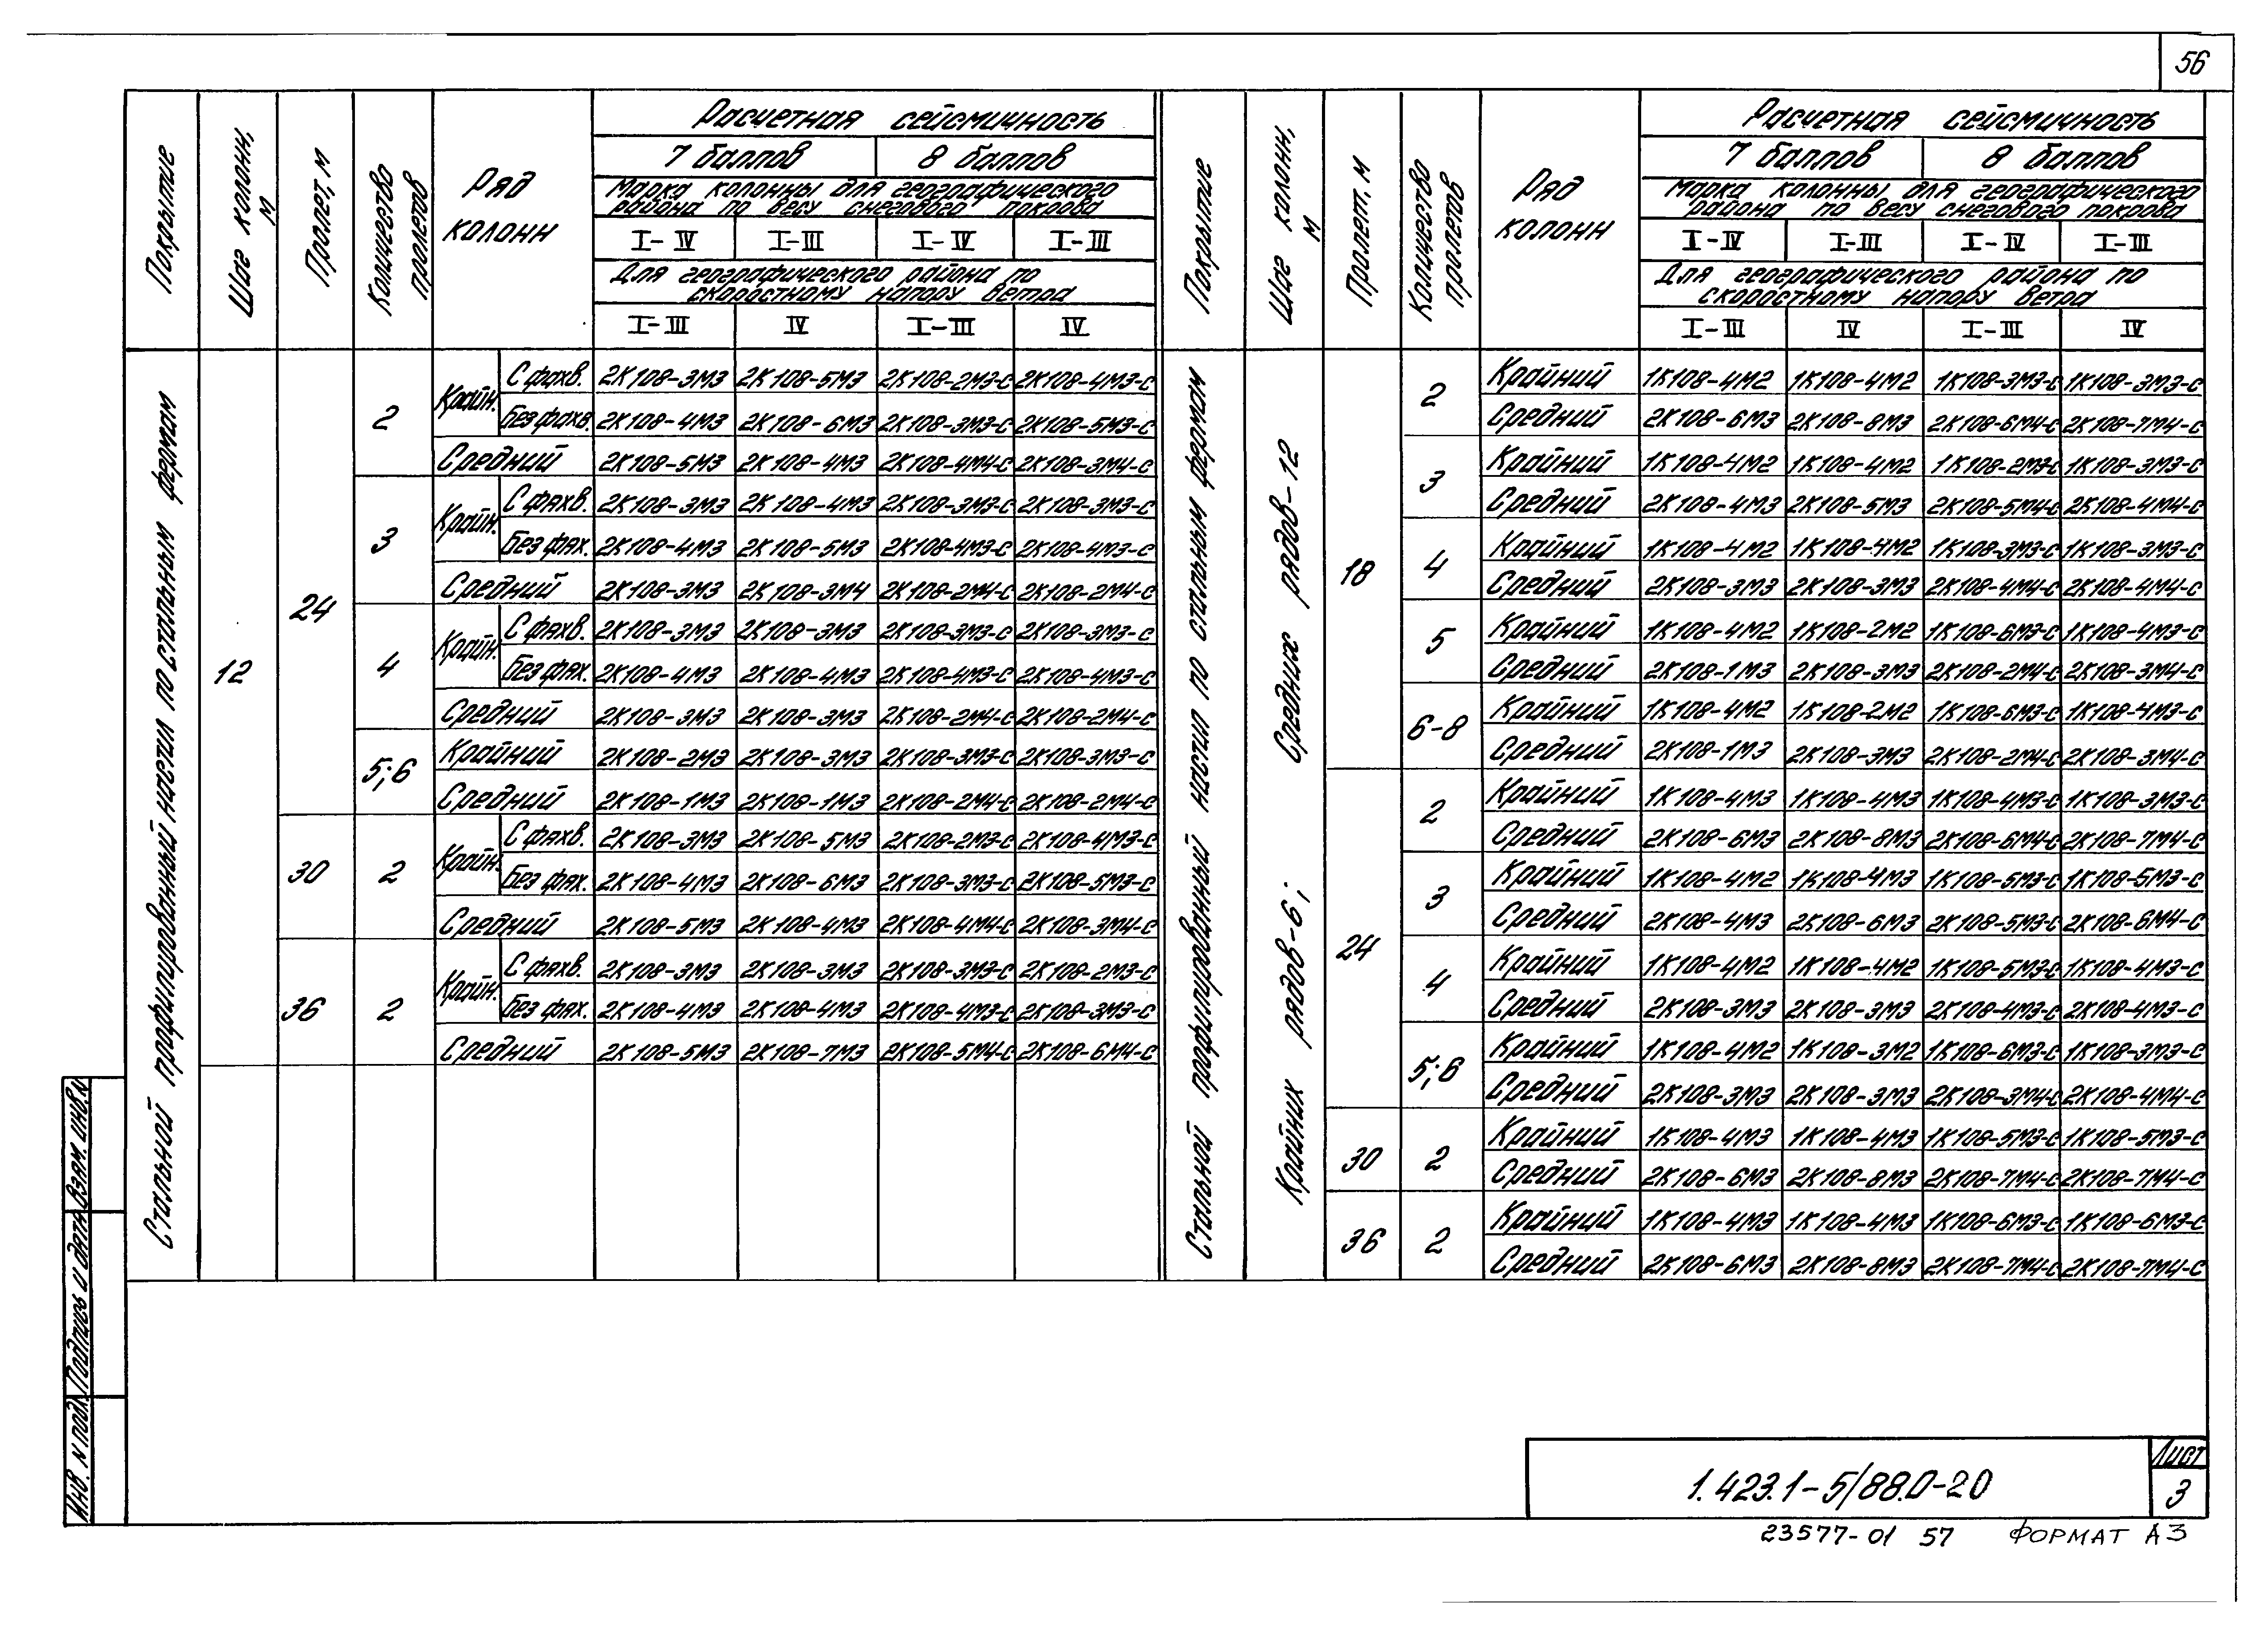 56
Покрытие
Шаг колонн, м
Пролет, м
Количество пролетов
Ряд колонн
Расчетная сейсмичность
7 баллов 8 баллов
Марка колонны для географического
района по весу снегового покрова
I-IV I-III I-IV I-III
Для географического района по
скоростному напору ветра
I-III IV I-III IV
Стальной профилированный настил по стальным фермам
12
24
2
Крайн. С фахв. 2К108-3М3 2К108-5М3 2К108-2М3-С 2К108-4М3-С
Без фахв. 2К108-4М3 2К108-6М3 2К108-3М3-С 2К108-5М3-С
Средний 2К108-5М3 2К108-4М3 2К108-4М4-С 2К108-3М4-С
3
Крайн. С фахв. 2К108-3М3 2К108-4М3 2К108-3М3-С 2К108-3М3-С
Без фах. 2К108-4М3 2К108-5М3 2К108-4М3-С 2К108-4М3-С
Средний 2К108-3М3 2К108-3М4 2К108-2М4-С 2К108-2М4-С
4
Крайн. С фахв. 2К108-3М3 2К108-3М3 2К108-3М3-С 2К108-3М3-С
Без фах. 2К108-4М3 2К108-4М3 2К108-4М3-С 2К108-4М3-С
Средний 2К108-3М3 2К108-3М3 2К108-2М4-С 2К108-2М4-С
5;6
Крайний 2К108-2М3 2К108-3М3 2К108-3М3-С 2К108-3М3-С
Средний 2К108-1М3 2К108-1М3 2К108-2М4-С 2К108-2М4-С
30 2
Крайн. С фахв. 2К108-3М3 2К108-5М3 2К108-2М3-С 2К108-4М3-С
Без фах. 2К108-4М3 2К108-6М3 2К108-3М3-С 2К108-5М3-С
Средний 2К108-5М3 2К108-4М3 2К108-4М4-С 2К108-3М4-С
36 2
Крайн. С фахв. 2К108-3М3 2К108-3М3 2К108-3М3-С 2К108-2М3-С
Без фах. 2К108-4М3 2К108-4М3 2К108-4М3-С 2К108-3М3-С
Средний 2К108-5М3 2К108-7М3 2К108-5М4-С 2К108-6М4-С
Покрытие
Шаг колонн, м
Пролет, м
Количество пролетов
Ряд колонн
Расчетная сейсмичность
7 баллов 8 баллов
Марка колонны для географического
района по весу снегового покрова
I-IV I-III I-IV I-III
Для географического района по
скоростному напору ветра
I-III IV I-III IV
Стальной профилированный настил по стальным фермам
Крайних рядов-6; Средних рядов-12
18
2
Крайний 1К108-4М2 1К108-4М2 1К108-3М3-С 1К108-3М3-С
Средний 2К108-6М3 2К108-8М3 2К108-6М4-С 2К108-7М4-С
3
Крайний 1К108-4М2 1К108-4М2 1К108-2М3-С 1К108-3М3-С
Средний 2К108-4М3 2К108-5М3 2К108-5М4-С 2К108-4М4-С
4
Крайний 1К108-4М2 1К108-4М2 1К108-3М3-С 1К108-3М3-С
Средний 2К108-3М3 2К108-3М3 2К108-4М4-С 2К108-4М4-С
5
Крайний 1К108-4М2 1К108-2М2 1К108-6М3-С 1К108-4М3-С
Средний 2К108-1М3 2К108-3М3 2К108-2М4-С 2К108-3М4-С
6-8
Крайний 1К108-4М2 1К108-2М2 1К108-6М3-С 1К108-4М3-С
Средний 2К108-1М3 2К108-3М3 2К108-2М4-С 2К108-3М4-С
24
2
Крайний 1К108-4М3 1К108-4М3 1К108-4М3-С 1К108-3М3-С
Средний 2К108-6М3 2К108-8М3 2К108-6М4-С 2К108-7М4-С
3
Крайний 1К108-4М2 1К108-4М3 1К108-5М3-С 1К108-5М3-С
Средний 2К108-4М3 2К108-6М3 2К108-5М3-С 2К108-6М4-С
4
Крайний 1К108-4М2 1К108-4М2 1К108-5М3-С 1К108-4М3-С
Средний 2К108-3М3 2К108-3М3 2К108-4М3-С 2К108-4М3-С
5;6
Крайний 1К108-4М2 1К108-3М2 1К108-6М3-С 1К108-3М3-С
Средний 2К108-3М3 2К108-3М3 2К108-3М4-С 2К108-4М4-С
30 2
Крайний 1К108-4М3 1К108-4М3 1К108-5М3-С 1К108-5М3-С
Средний 2К108-6М3 2К108-8М3 2К108-7М4-С 2К108-7М4-С
36 2
Крайний 1К108-4М3 1К108-4М3 1К108-6М3-С 1К108-6М3-С
Средний 2К108-6М3 2К108-8М3 2К108-7М4-С 2К108-7М4-С
Инв. N подл. Подпись и дата Взам. инв. N
1.423.1-5/88.0-20
Лист
3
23577-01 57 ФОРМАТ А3